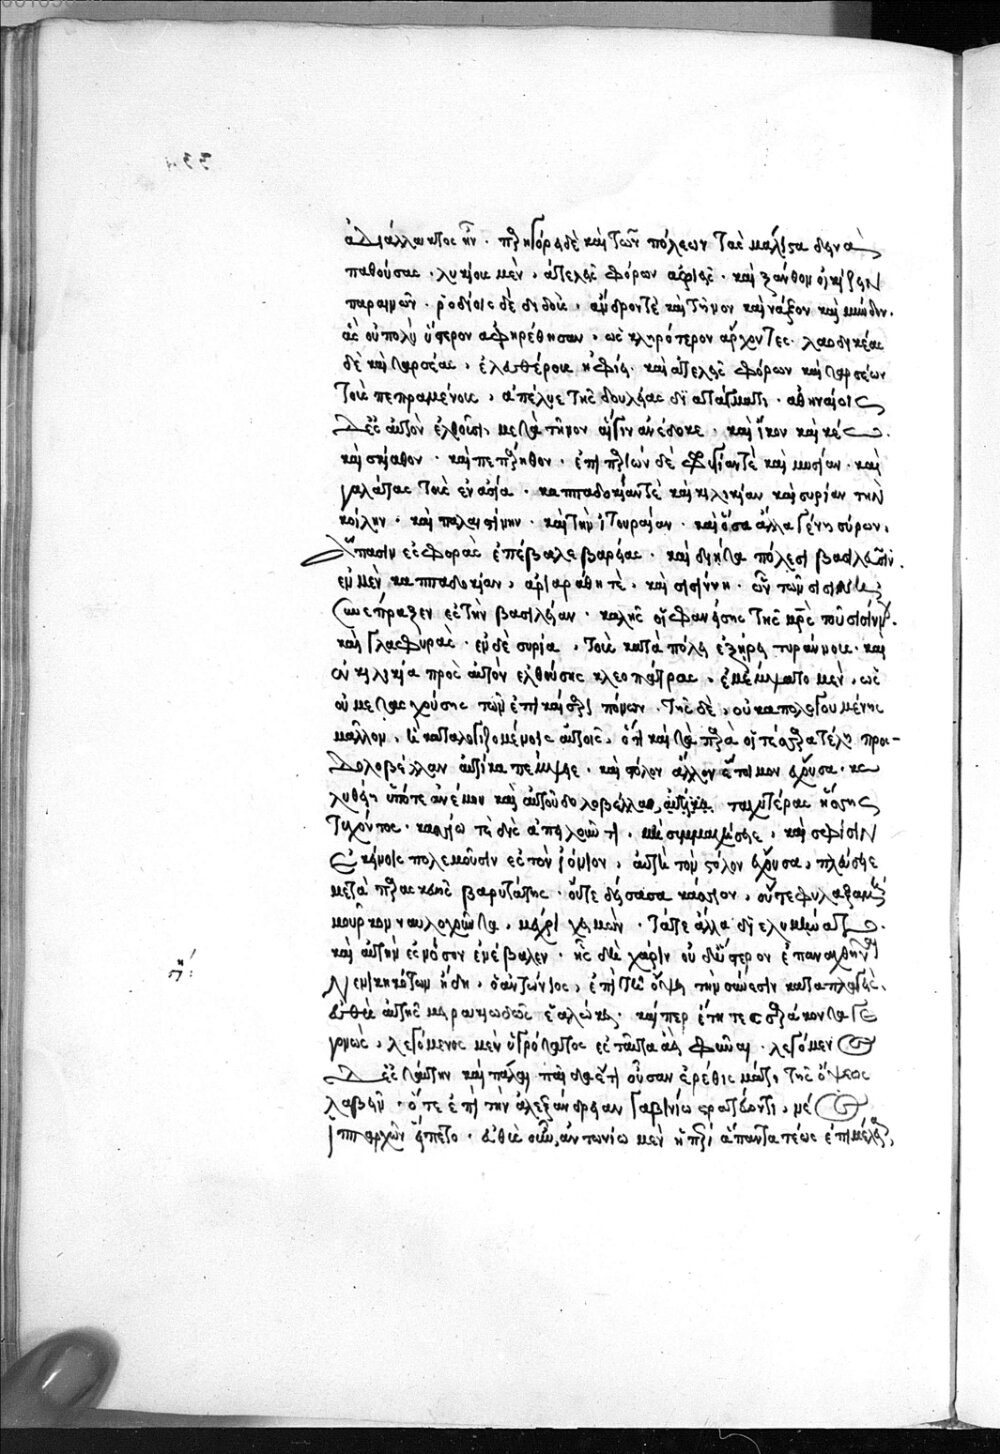 ἀδιάλλακτος ἦν. παρηγόρει δὲ καὶ τῶν πόλεων τὰς μάλιστα δεινὰ
παθούσας. λυκίους μὲν, ἀτελεῖς φόρων ἀφιεὶς. καὶ ξάνθον οἰκίζειν
παραινῶν. ῥοδίοις δὲ διδοὺς, ἄνδρον τὲ καὶ τῆνον καὶ νάξον καὶ μύνδον.
ἃς οὐ πολὺ ὕστερον ἀφῃρέθησαν, ὡς σκληρότερον ἄρχοντες. λαοδικέας
δὲ καὶ ταρσέας, ἐλευθέρους ἠφίει. καὶ ἀτελεῖς φόρων καὶ ταρσέων
τοὺς πεπραμένους, ἀπέλυε τῆς δουλείας διατάγματι. ἀθηναίοις
δ' ἐς αὐτὸν ἐλθοῦσι, μετὰ τῆνον αἴγιναν ἔδωκε. καὶ ἴκον καὶ κέω.
καὶ σκίαθον. καὶ πεπάρηθον. ἐπιπαριὼν δὲ φρυγίαν τὲ καὶ μυσίαν. καὶ
γαλάτας τοὺς ἐν ἀσία. καππαδοκίαν τὲ καὶ κιλικίαν καὶ συρίαν τὴν
κοίλην. καὶ παλαιστίνην. καὶ τὴν ἰτουραίαν. καὶ ὅσα ἄλλα γένη σύρων,
ἅπασιν ἐσφορὰς ἐπέβαλε βαρείας. καὶ διῄτα πόλεσι βασιλεῦσιν.
ἐν μὲν καππαδοκίαν, ἀριαράθη τὲ, καὶ σισίνη. ὧν τῶν σισίνη
συνέπραξεν ἐς τὴν βασιλείαν. καλῆς οἱ φανείσης τῆς μρς τοῦ σισίνου.
καὶ γλαφύρας. ἐν δὲ συρία, τοὺς κατὰ πόλεις ἐξῄρει τυράννους. καὶ
ἐν κιλικία πρὸς αὐτὸν ἐλθούσης κλεοπάτρας, ἐμέμψατο μὲν, ὡς
οὐ μετασχούσης τῶν ἐπὶ καίσαρι πόνων. τῆς δὲ, οὐκ ἀπολογουμένης
μᾶλλον, ἢ καταλογιζομένης αὐτοῖς, ὅτι καὶ τὰ παρὰ οἷ τέσσαρα τέλη πρὸς
δολοβέλλαν αὐτίκα πέμψειε. καὶ στόλον ἄλλον ἕτοιμον ἔχουσα. κω
λυθείη ὑπό τε ἀνέμου καὶ αὐτοῦ δολοβέλλα, ταχυτέρας ἥσσης
τυχόντος. κασσίω τὲ δὶς ἀπειλοῦντι, μὴ συμμαχήσειε, καὶ σφίσιν
ἐκείνοις πολεμοῦσιν ἐς τὸν ἰόνιον, αὐτὴ τὸν στόλον ἔχουσα, πλεύσειε
μετὰ παρασκευῆς βαρυτάτης. οὔτε δείσασα κάσσιον, οὔτε φυλαξαμένη
μοῦρκον ναυλοχοῦντα, μέχρι χειμὼν. τά τε ἄλλα διελυμήνατο.
καὶ αὐτὴν ἐς νόσον ἐνέβαλεν. ἧς δὴ χάριν οὐ δεύτερον ἐπαναχθῆναι
νενικηκότων ἤδη, ὁ ἀντώνιος, ἐπὶ τῆ ὄψει τὴν σύνεσιν καταπλαγεὶς.
εὐθὺς αὐτῆς μειρακιωδῶς ἑαλώκει. καίπερ ἔτη τεσσαράκοντα γε
γονὼς, λεγόμενος μὲν ὑγρότατος ἐς ταῦτα ἀεὶ φῦναι. λεγόμενος
δ' ἐς ταύτην καὶ πάλαι παῖδα ἔτι οὖσαν ἐρέθισμά τι τῆς ὄψεως
λαβεῖν. ὅτε ἐπὶ τὴν ἀλεξάνδρειαν γαβινίω στρατεύοντι, νέος
ἱππαρχῶν εἵπετο. εὐθὺς οὖν ἀντωνίω μὲν ἡ περὶ ἅπαντα τέως ἐπιμέλεια,